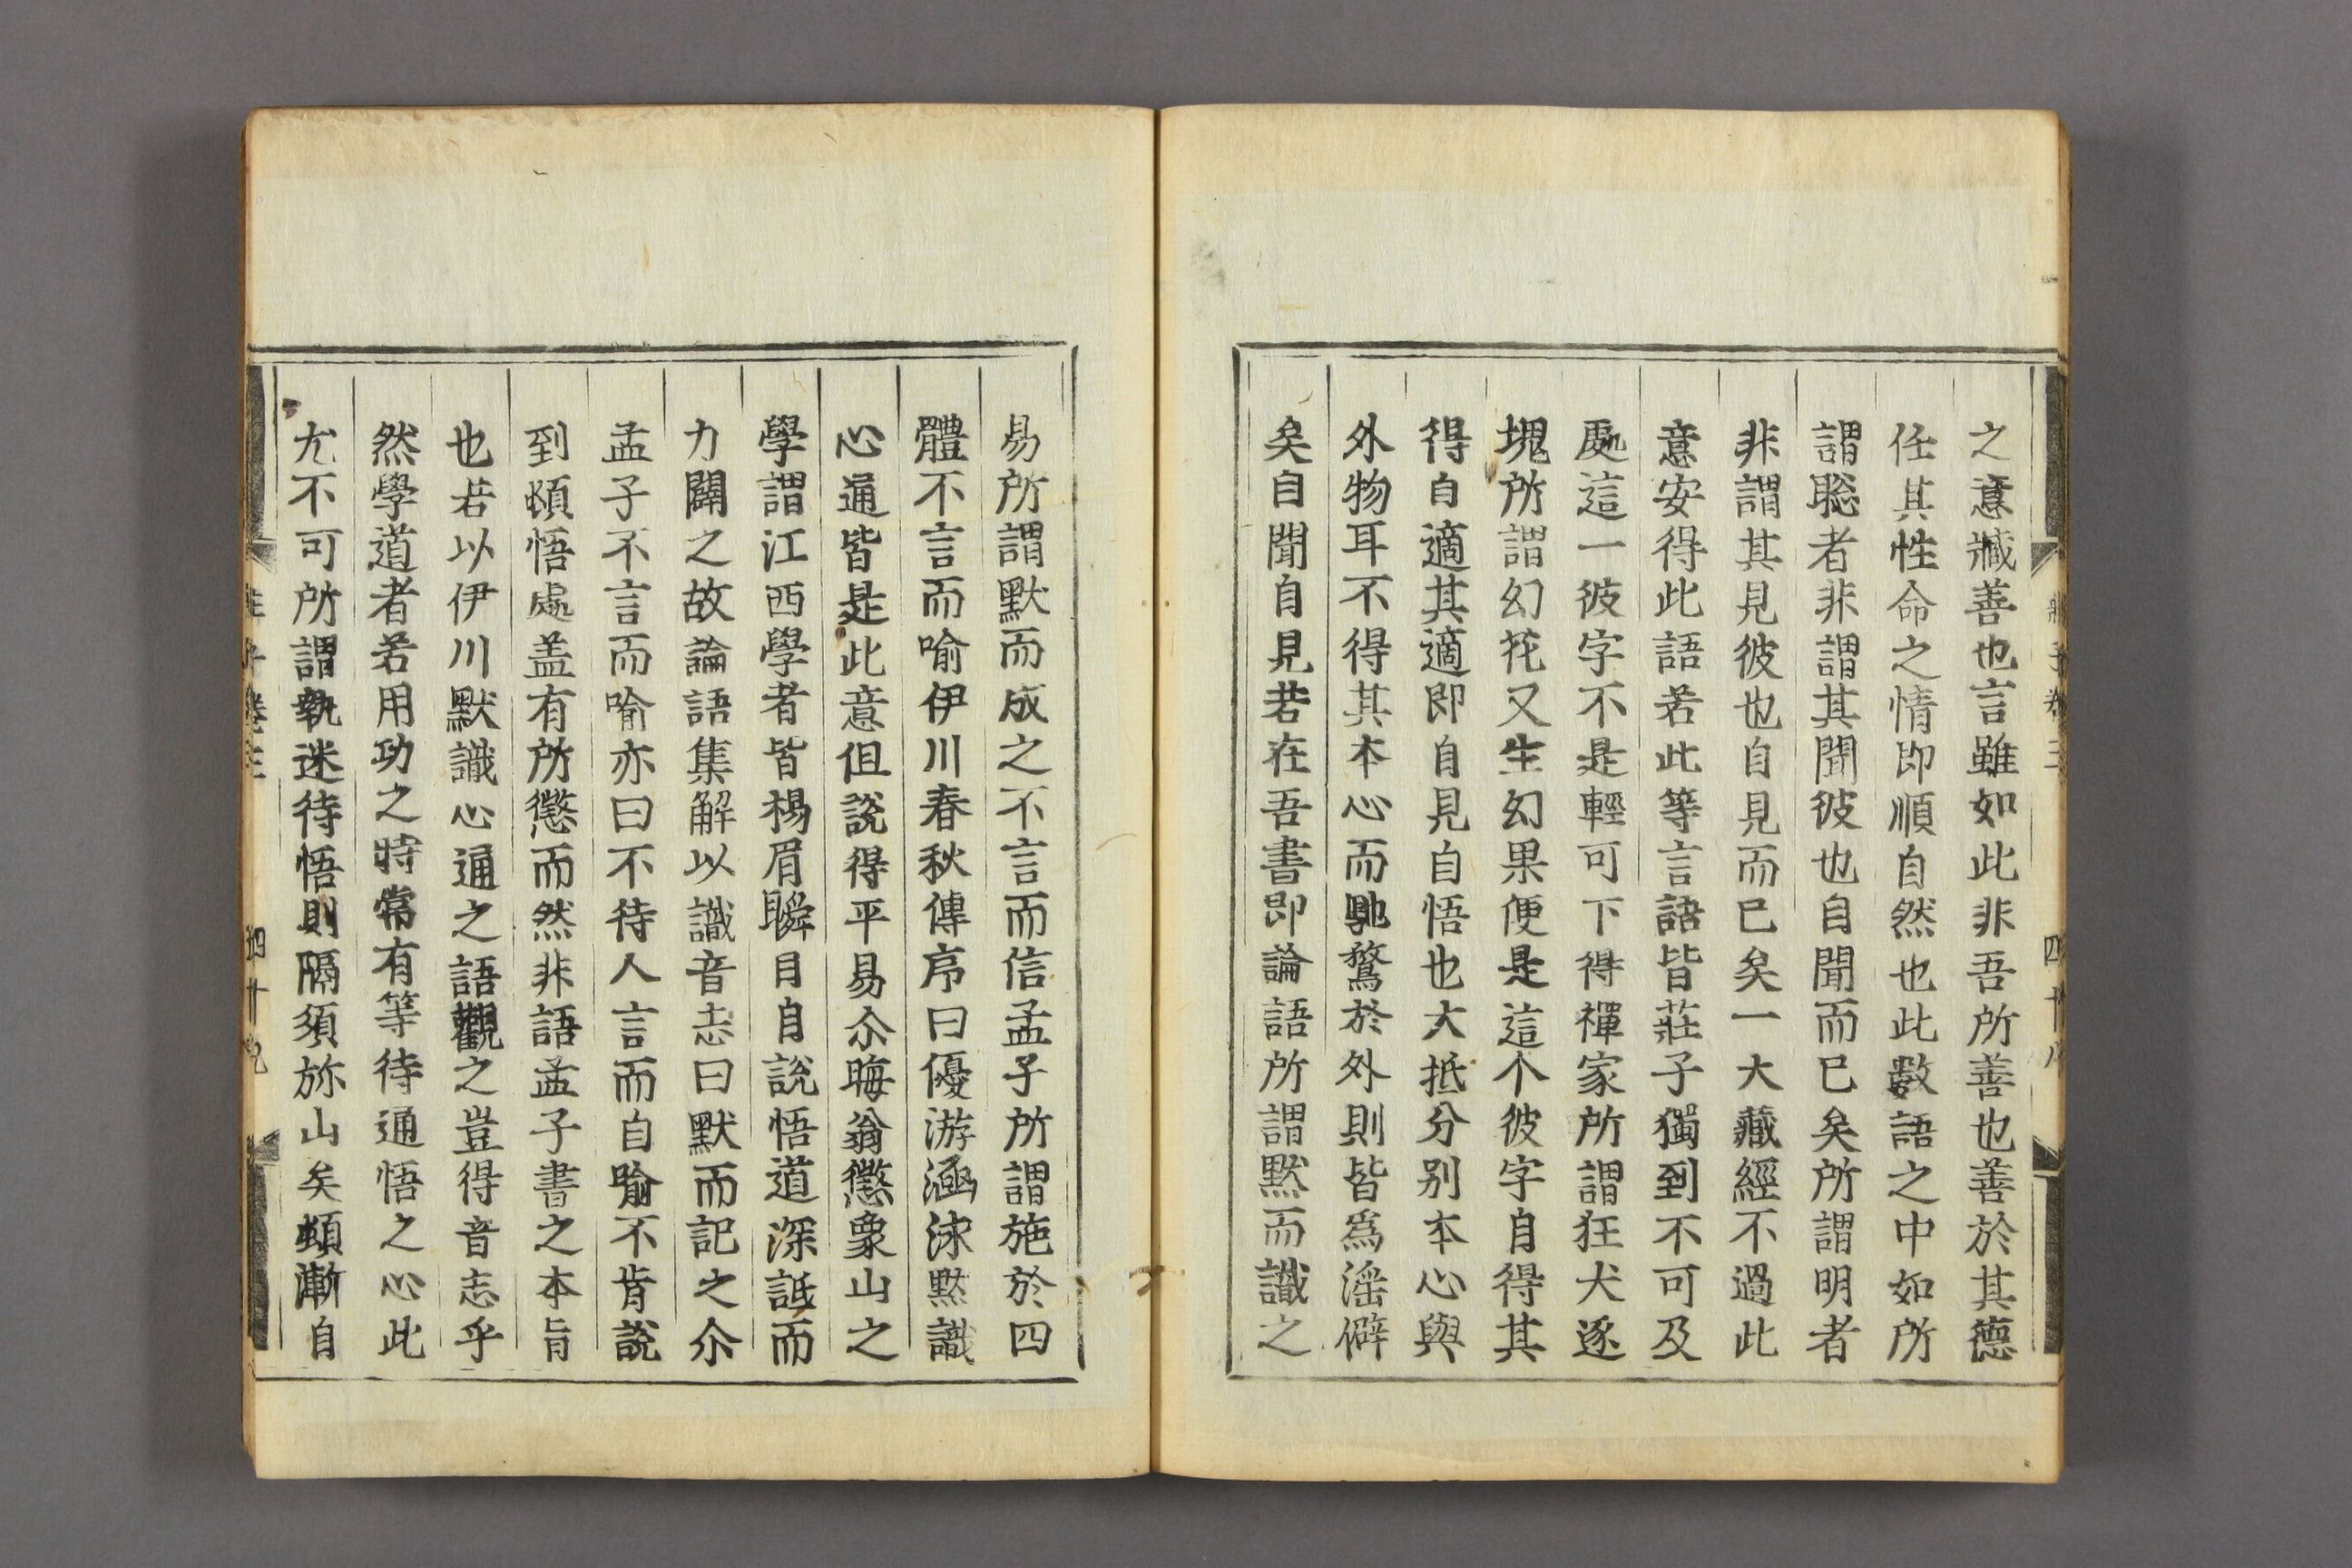 之意臧善也言雖如此非吾所善也善於其德
任其性命之情即順自然也此數語之中如所
謂聡者非謂其聞彼也自聞而已矣所謂明者
非謂其見彼也自見而已矣一大藏經不過此
意安得此語若此等言語皆莊子獨到不可及
處這一彼字不是輕可下得禪家所謂狂犬逐
塊所謂幻花又生幻果便是這个彼字自得其
得自適其適即自見自悟也大抵分別本心與
外物耳不得其本心而馳騖於外則皆爲滛僻
矣自聞自見若在吾書即論語所謂默而識之
易所謂默而成之不言而信孟子所謂施於四
體不言而喻伊川春秋傳序曰優游涵泳默識
心通皆是此意但說得平易尒晦翁懲象山之
學謂江西學者皆楊眉瞬目自說悟道深詆而
力闢之故論語集解以識音志曰默而記之尒
孟子不言而喻亦曰不待人言而自喻不肯說
到頓悟處盖有所懲而然非語孟子書之本旨
也若以伊川默識心通之語觀之豈得音志乎
然學道者若用功之時常有等待通悟之心此
尤不可所謂執迷待悟則隔須旀山矣頓漸自
莊子卷三
四十八
四十九